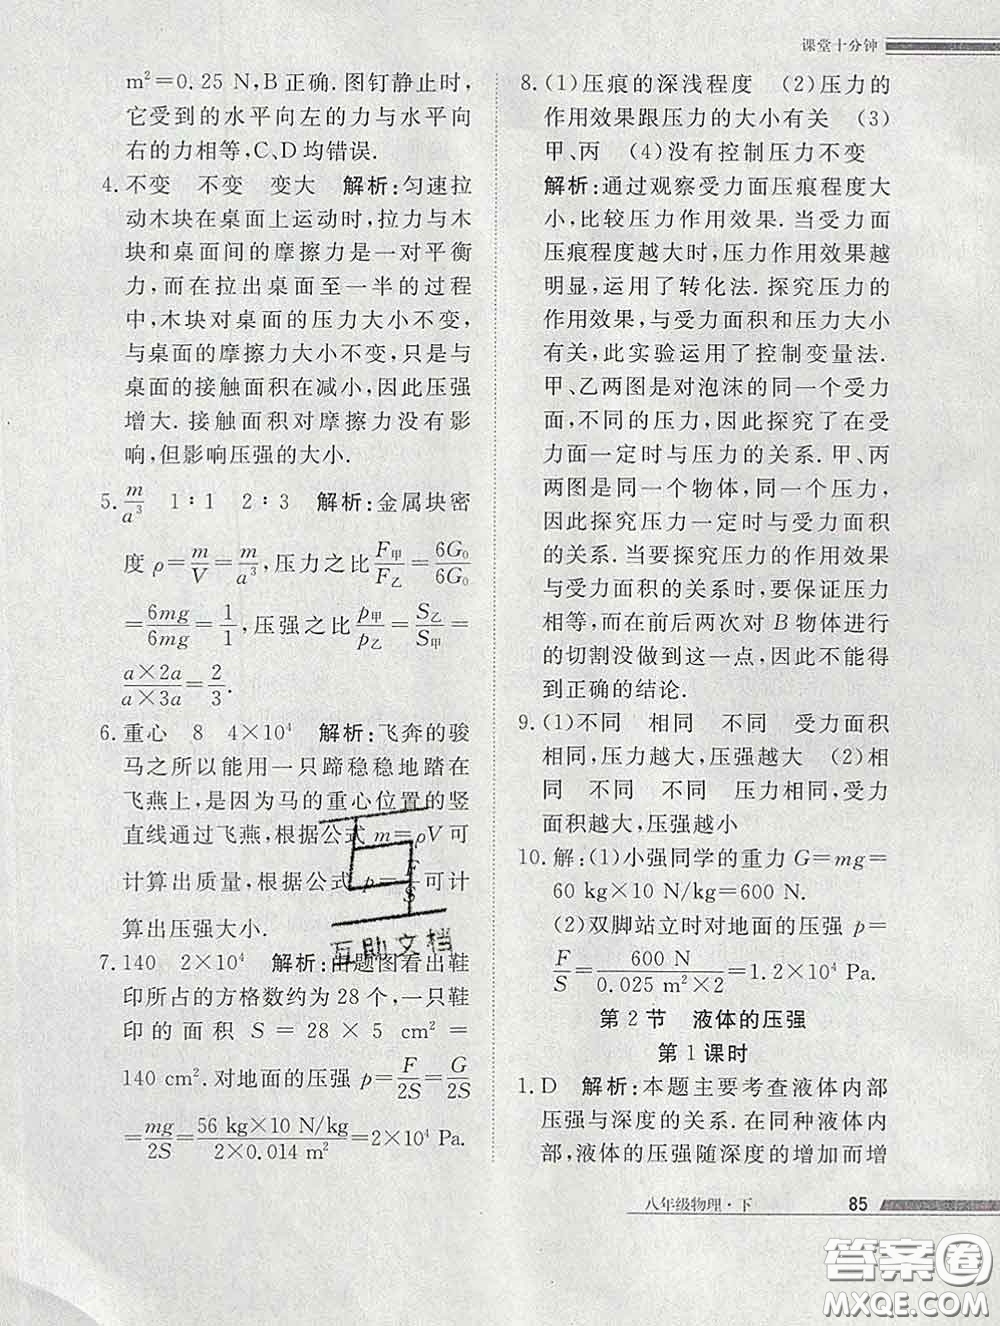 课堂十分钟
m²=0.25 N,B正确.图钉静止时,
它受到的水平向左的力与水平向
右的力相等,C、D均错误.
4.不变 不变 变大 解析:匀速拉
动木块在桌面上运动时,拉力与木
块和桌面间的摩擦力是一对平衡
力.而在拉出桌面至一半的过程
中,木块对桌面的压力大小不变,
与桌面的摩擦力大小不变,只是与
桌面的接触面积在减小,因此压强
增大.接触面积对摩擦力没有影
响,但影响压强的大小.
5.m/a³ 1∶1 2∶3 解析:金属块密
度ρ=m/V=m/a³,压力之比F甲/F乙=6G₀/6G₀
=6mg/6mg=1/1,压强之比p甲/p乙=S乙/S甲=
a×2a/a×3a=2/3.
6.重心 8 4×10⁴ 解析:飞奔的骏
马之所以能用一只蹄稳稳地踏在
飞燕上,是因为马的重心位置的竖
直线通过飞燕,根据公式m=ρV可
计算出质量,根据公式p=F/S可计
算出压强大小.
7.140 2×10⁴ 解析:由题图看出鞋
印所占的方格数约为28个,一只鞋
印的面积S=28×5 cm²=
140 cm².对地面的压强p=F/2S=G/2S
=mg/2S=56 kg×10 N/kg/2×0.014 m²=2×10⁴ Pa.
8.(1)压痕的深浅程度 (2)压力的
作用效果跟压力的大小有关 (3)
甲、丙 (4)没有控制压力不变
解析:通过观察受力面压痕程度大
小,比较压力作用效果.当受力面
压痕程度越大时,压力作用效果越
明显,运用了转化法.探究压力的
作用效果,与受力面积和压力大小
有关,此实验运用了控制变量法.
甲、乙两图是对泡沫的同一个受力
面,不同的压力,因此探究了在受
力面一定时与压力的关系.甲、丙
两图是同一个物体,同一个压力,
因此探究压力一定时与受力面积
的关系.当要探究压力的作用效果
与受力面积的关系时,要保证压力
相等,而在前后两次对B物体进行
的切割没做到这一点,因此不能得
到正确的结论.
9.(1)不同 相同 不同 受力面积
相同,压力越大,压强越大 (2)相
同 不同 不同 压力相同,受力
面积越大,压强越小
10.解:(1)小强同学的重力G=mg=
60 kg×10 N/kg=600 N.
(2)双脚站立时对地面的压强p=
F/S=600 N/0.025 m²×2=1.2×10⁴ Pa.
第2节 液体的压强
第1课时
1.D 解析:本题主要考查液体内部
压强与深度的关系.在同种液体内
部,液体的压强随深度的增加而增
八年级物理·下 85
互助文档
答案圈
MXQE.COM